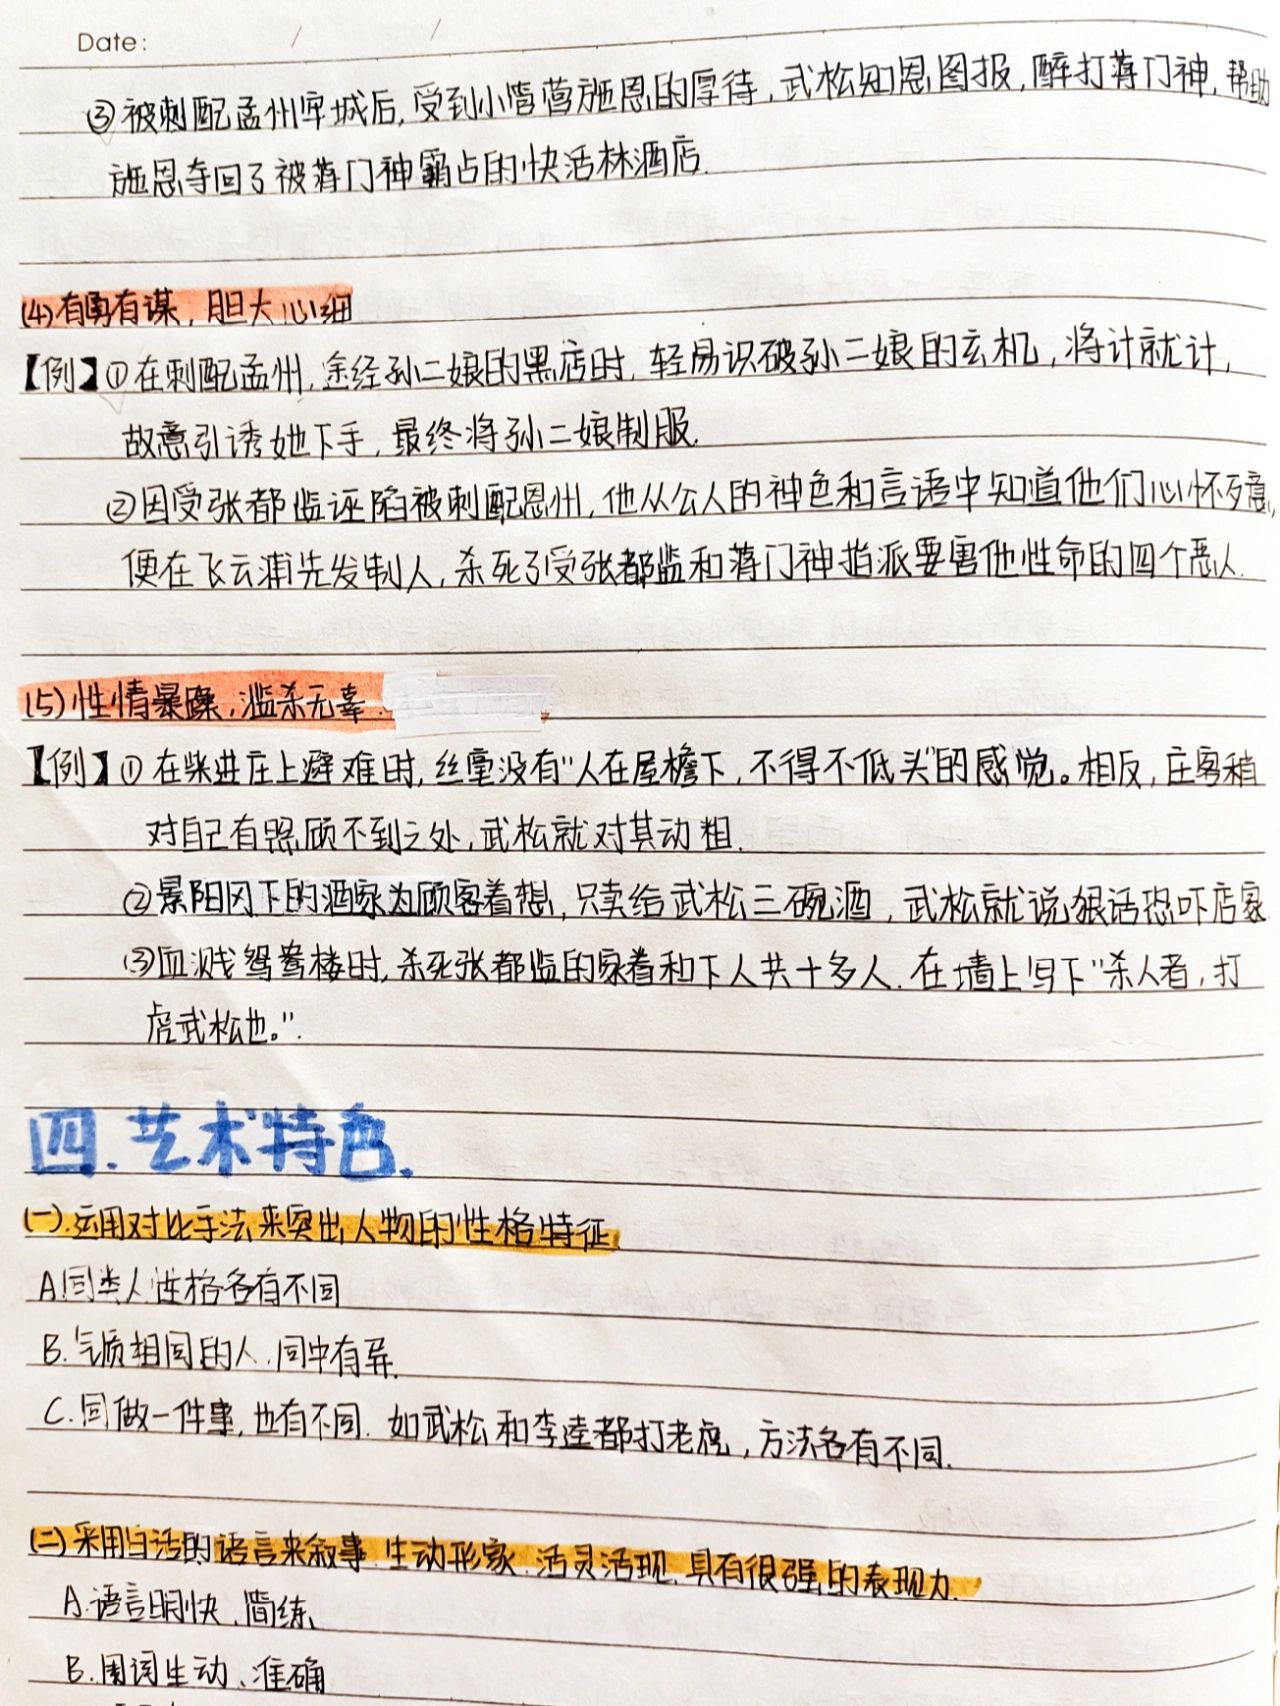 Date: / /
③被刺配孟州牢城后,受到小管营施恩的厚待,武松知恩图报,醉打蒋门神,帮助
施恩夺回了被蒋门神霸占的快活林酒店.
(4)有勇有谋,胆大心细
【例】①在刺配孟州,途经孙二娘的黑店时,轻易识破孙二娘的玄机,将计就计,
故意引诱她下手,最终将孙二娘制服.
②因受张都监诬陷被刺配恩州,他从公人的神色和言语中知道他们心怀歹意,
便在飞云浦先发制人,杀死了受张都监和蒋门神指派要害他性命的四个恶人.
(5)性情暴躁,滥杀无辜.
【例】①在柴进庄上避难时,丝毫没有"人在屋檐下,不得不低头"的感觉。相反,庄客稍
对自己有照顾不到之处,武松就对其动粗.
②景阳冈下的酒家为顾客着想,只卖给武松三碗酒,武松就说狠话恐吓店家.
③血溅鸳鸯楼时,杀死张都监的家眷和下人共十多人.在墙上写下"杀人者,打
虎武松也。".
四.艺术特色.
(一).运用对比手法来突出人物的性格特征
A同类人性格各有不同
B.气质相同的人.同中有异.
C.同做一件事,也有不同.如武松和李逵都打老虎,方法各有不同.
(二)采用白话的语言来叙事.生动形象.活灵活现.具有很强的表现力.
A.语言明快、简练、
B.用词生动、准确